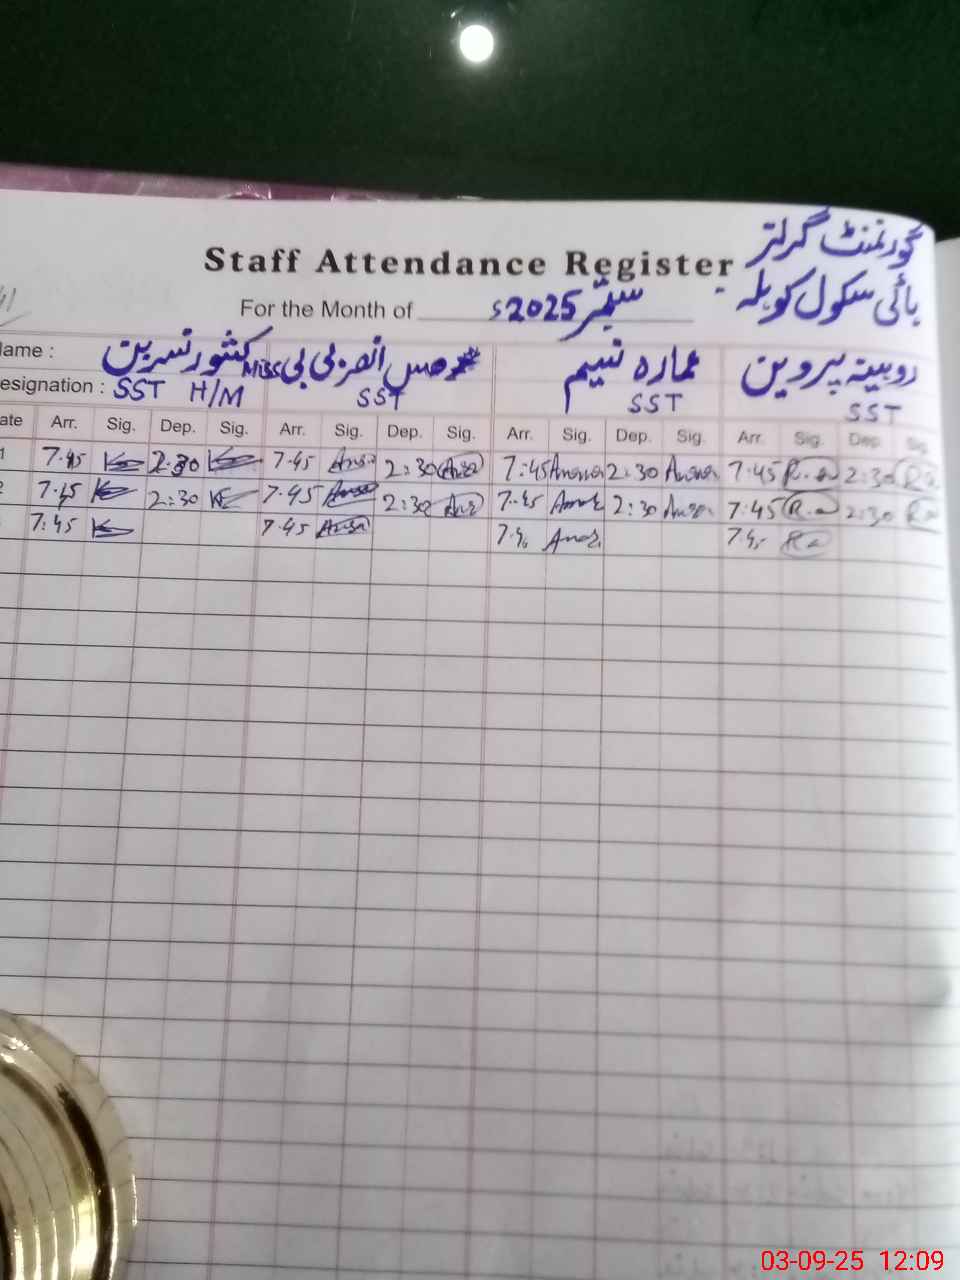 گورنمنٹ گرلز
Staff Attendance Register
ہائی سکول کوہلہ
For the Month of ستمبر 2025ء
ame : کشور نسرین Miss مس انصر بی بی عمارہ نسیم روبینہ پروین
esignation : SST H/M SST SST SST
ate Arr. Sig. Dep. Sig. Arr. Sig. Dep. Sig. Arr. Sig. Dep. Sig. Arr. Sig. Dep. Sig.
1 7.45 2:30 7.45 2:30 7:45 2:30 7.45 2:30
2 7.45 2:30 7.45 2:30 7.45 2:30 7.45 2:30
7:45 7.45 7.45 7.45
03-09-25 12:09